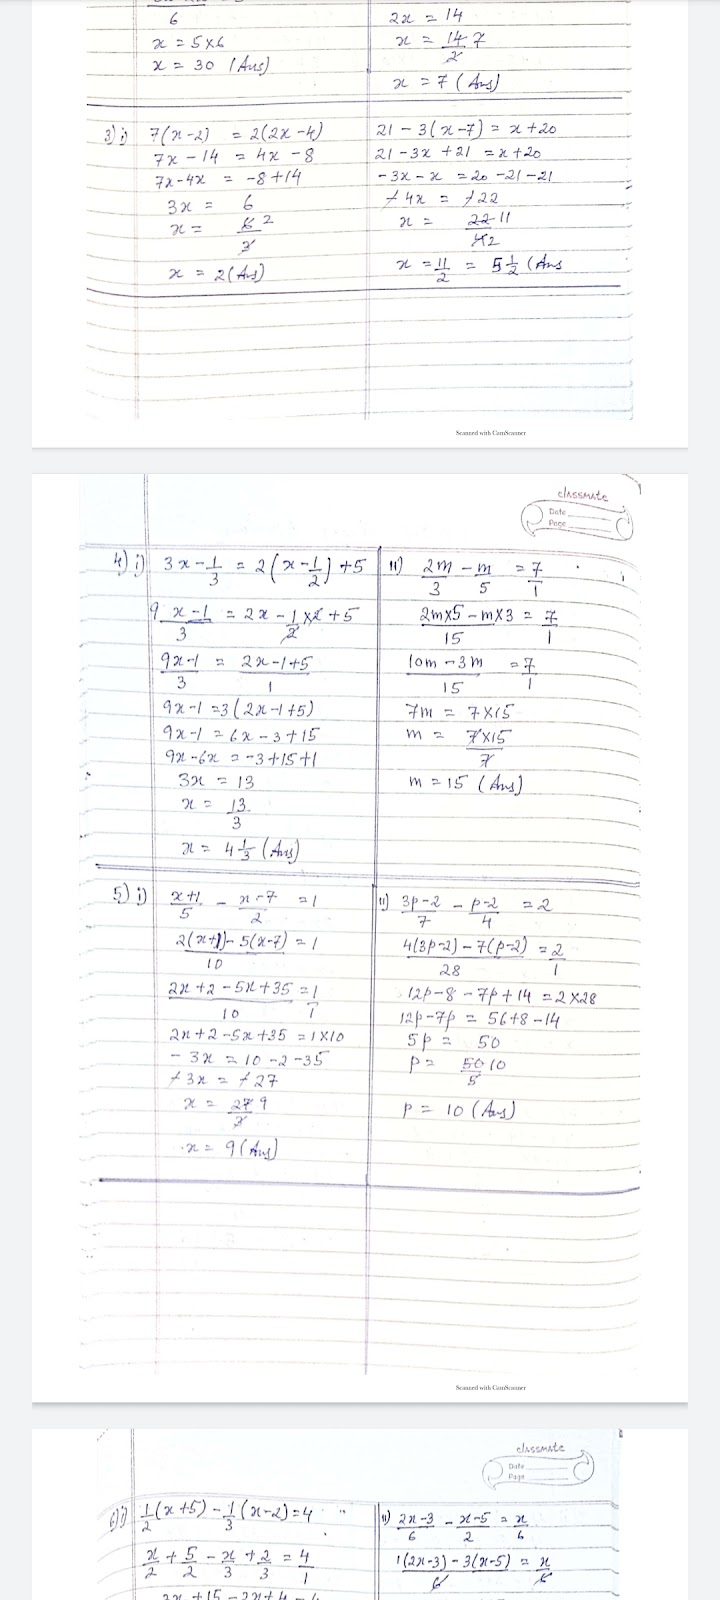 6
x = 5×6
x = 30 (Ans)
2x = 14
x = 14 7
2
x = 7 (Ans)
3) i) 7(x-2) = 2(2x-4)
7x - 14 = 4x - 8
7x-4x = -8+14
3x = 6
x = 6 2
3
x = 2 (Ans)
21 - 3(x-7) = x+20
21 - 3x + 21 = x+20
-3x - x = 20 -21 -21
-4x = -22
x = 22 11
4 2
x = 11/2 = 5 1/2 (Ans
Scanned with CamScanner
classmate
Date
Page
4) i) 3x - 1/3 = 2(x - 1/2) + 5
9x-1/3 = 2x - 1/2 × 2 + 5
9x-1/3 = 2x-1+5/1
9x-1 = 3(2x-1+5)
9x-1 = 6x - 3 + 15
9x-6x = -3+15+1
3x = 13
x = 13/3
x = 4 1/3 (Ans)
ii) 2m/3 - m/5 = 7/1
2m×5 - m×3/15 = 7/1
10m - 3m/15 = 7/1
7m = 7×15
m = 7×15/7
m = 15 (Ans)
5) i) x+1/5 - x-7/2 = 1
2(x+1) - 5(x-7)/10 = 1
2x+2-5x+35/10 = 1/1
2x+2-5x+35 = 1×10
-3x = 10-2-35
-3x = -27
x = 27 9
3
x = 9 (Ans)
ii) 3p-2/7 - p-2/4 = 2
4(3p-2) - 7(p-2)/28 = 2/1
12p-8-7p+14 = 2×28
12p-7p = 56+8-14
5p = 50
p = 50 10
5
p = 10 (Ans)
Scanned with CamScanner
classmate
Date
Page
6) i) 1/2(x+5) - 1/3(x-2) = 4
x/2 + 5/2 - x/3 + 2/3 = 4/1
3x+15-2x+4
ii) 2x-3/6 - x-5/2 = x/6
1(2x-3) - 3(x-5)/6 = x/6